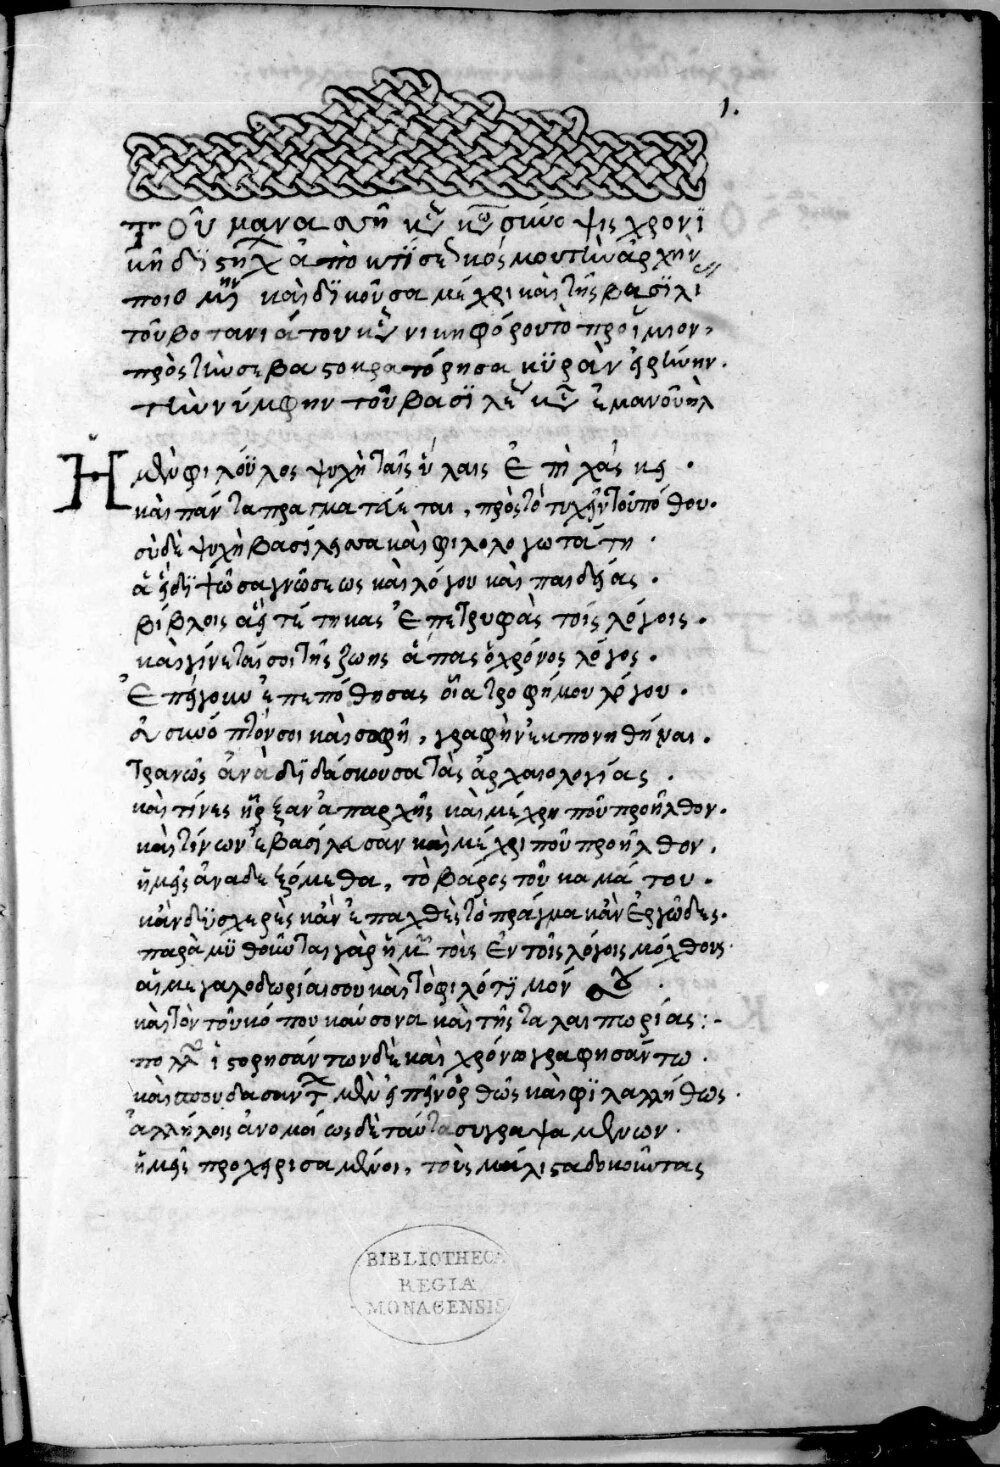 1.
τοῦ μανασσῆ κυροῦ κων σύνοψις χρονϊ
κὴ διηγη ἀπὸ κτίσεως κόσμου τὴν ἀρχὴν
ποιο μένη καὶ διηκοῦσα μέχρι καὶ τῆς βασϊλεί
τοῦ βοτανιάτου κυροῦ νικηφόρου τὸ προΐμιον,
πρὸς τὴν σεβαστοκρατόρησα κϋρὰν εἰρήνην.
τὴν νύμφην τοῦ βασϊλέως κυροῦ ἐμανουὴλ
Ἡ μὲν φιλόϋλος ψυχὴ ταῖς ὕλαις ἐπιχάσκει .
καὶ πάντα πραγματεύεται, πρὸς τὸ τυχεῖν τοῦ πόθου.
σὺ δὲ ψυχὴ βασίλεισσα καὶ φιλολογωτάτη .
ἀεὶ διψῶσα γνώσεως καὶ λόγου καὶ παιδείας .
βίβλοις ἀεὶ τέτηκας ἐπετρυφᾶς τοῖς λόγοις .
καὶ γίνεταί σοι τῆς ζωῆς ἅπας ὁ χρόνος λόγος .
Ἐπεὶ γοῦν ἐπεπόθησας οἷα τροφήμου λόγου .
εὐσύνοπτόν σοι καὶ σαφῆ, γραφὴν ἐκπονηθῆναι .
τρανῶς ἀναδϊδάσκουσα τὰς ἀρχαιολογίας .
καὶ τίνες ἦρξαν ἀπαρχῆς καὶ μέχρη ποῦ προῆλθον.
καὶ τίνων ἐβασίλευσαν καὶ μέχρι ποῦ προῆλθον.
ἡμεῖς ἀναδεξόμεθα, τὸ βάρος τοῦ καμάτου .
κἂν δϋσχερὲς κἂν ἐπαχθὲς τὸ πρᾶγμα κἂν ἐργῶδες.
παραμϋθοῦνται γὰρ ἡμῶν τοὺς ἐν τοῖς λόγοις μόχθους.
αἱ μεγαλοδωρίαι σου καὶ τὸ φιλότϊμόν σου .
καὶ τὸν τοῦ κόπου καύσονα καὶ τῆς ταλαιπωρίας :-
πολλῶν ἱστορησάντων δὲ καὶ χρόνογραφησάντω .
καὶ σπουδασάντων μὲν εἰπεῖν ὀρθῶς καὶ φϊλαλλήθως .
ἀλλήλοις ἀνομοίως δὲ ταῦτα συγραψαμένων .
ἡμεῖς προχειρισαμένοι, τοὺς μάλιστα δοκοῦντας
BIBLIOTHECA
REGIA
MONACENSIS